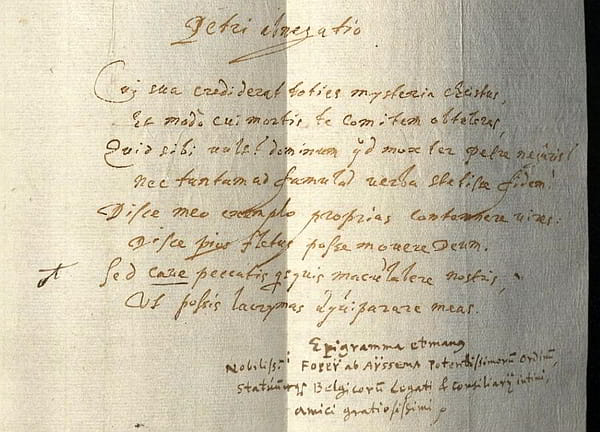 Petri abnegatio
Cuj sua crediderat toties mysteria Christus,
Et modo cui mortis te comitem obtuleras,
Quid sibi vult dominum qd mox ter petre negaris!
Nec tantum ad famulae verba stetisse fidem!
Disce meo exemplo proprias contemnere vires:
Disce pios fletus posse movere Deum.
Sed cave peccatis qsquis maculabere nostris,
Ut possis lacrymas aequiparare meas.
Epigramma et manus
Nobilissi Foppij ab Aÿssema Potentissimorū Ordinū,
Statuūmqs Belgicorū Legati & consiliarij intimi,
amici gratiosissimi